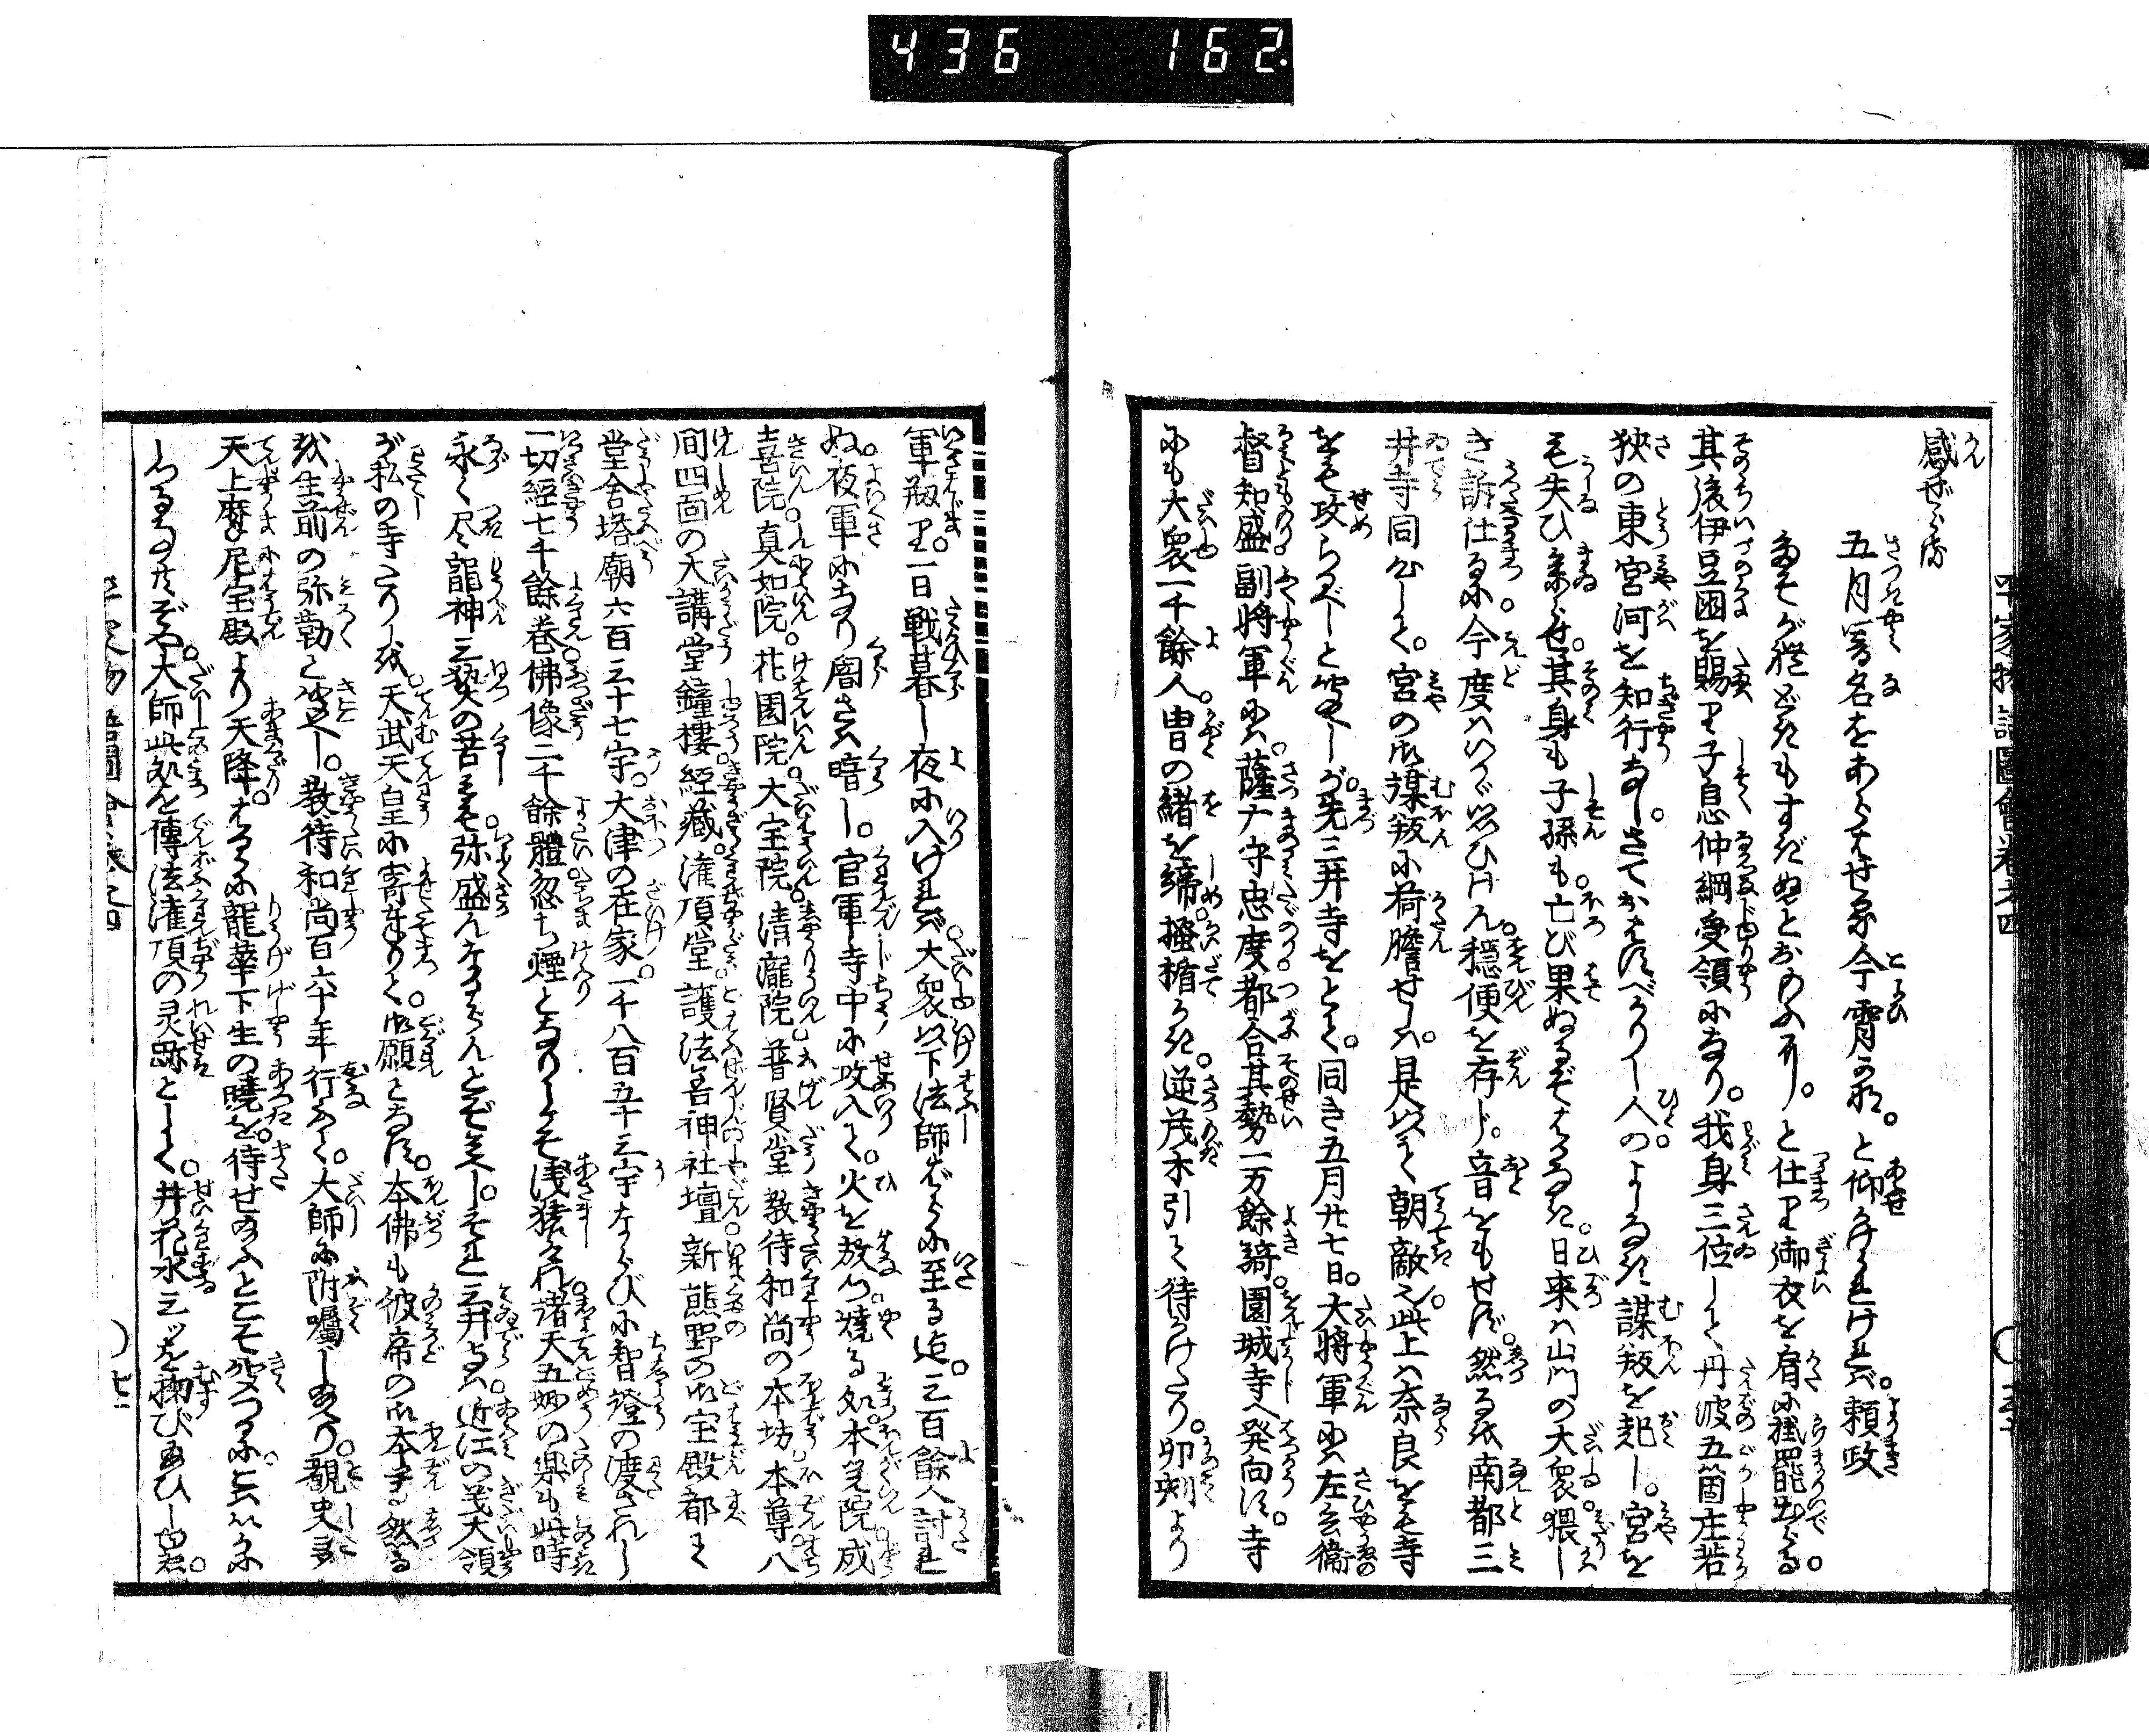 436 162
平家物語圖會巻之四
感ぜらる
五月闇名をあらはせる今宵かな。と仰かけられければ。頼政
たそがれどきもすぎぬとおもふに。と仕り御衣を肩に掛罷出らる。
其後伊豆国を賜り子息仲綱受領になり。我身三位して丹波五箇庄若
狭の東宮河を知行なし。さておはすべかりし人のよしなき謀叛を起し。宮を
も失ひ参らせ。其身も子孫も亡び果ぬるぞうたてき。日来ハ山門の大衆猥し
き訴仕るに今度ハいかゞ思ひけん。穏便を存じ。音をもせず。然るを南都三
井寺同心して。宮の御謀叛に荷膽せしハ。是以て朝敵也此上ハ奈良をも寺
をも攻らるべしと聞えしが。先三井寺をとて。同き五月廿七日。大将軍にハ左兵衞
督知盛副将軍にハ。薩广守忠度都合其勢一万餘騎。園城寺へ発向す。寺
にも大衆一千餘人。冑の緒を締。掻楯かき。逆茂木引て待かけたり。卯刻より
軍初り。一日戦暮し夜に入ければ。大衆以下法師ばらに至る迄。三百餘人討れ
ぬ。夜軍になり闇さハ暗し。官軍寺中に攻入て。火を放つ。焼る処。本覚院成
喜院。真如院。花園院。大宝院。清瀧院。普賢堂教待和尚の本坊。本尊。八
間四面の大講堂鐘樓。經藏。潅頂堂。護法善神社壇。新熊野の御宝殿都て
堂舎塔廟六百三十七宇。大津の在家一千八百五十三宇ならびに智證の渡されし
一切經七千餘巻佛像二千餘體忽ち煙となりしこそ浅猿けれ。諸天五妙の楽も此時
永く尽。龍神三熱の苦しみも弥盛んなるらんとぞ見えし。それ三井寺ハ近江の義大領
が私の寺たりしを。天武天皇に寄奉りて。御願となす。本佛も彼帝の御本尊。然る
を生前の弥勒と聞えし。教待和尚百六十年行ふて。大師に附属しあり。覩史多
天上摩尼宝殿より天降。はるかに龍華下生の暁を。待せ給ふとこそ聞つるに。こハいかに
しつる事共ぞや。大師此処を傳法潅頂の灵跡として。井花水三ッを掬びあひし由。
平家物語圖會巻之四